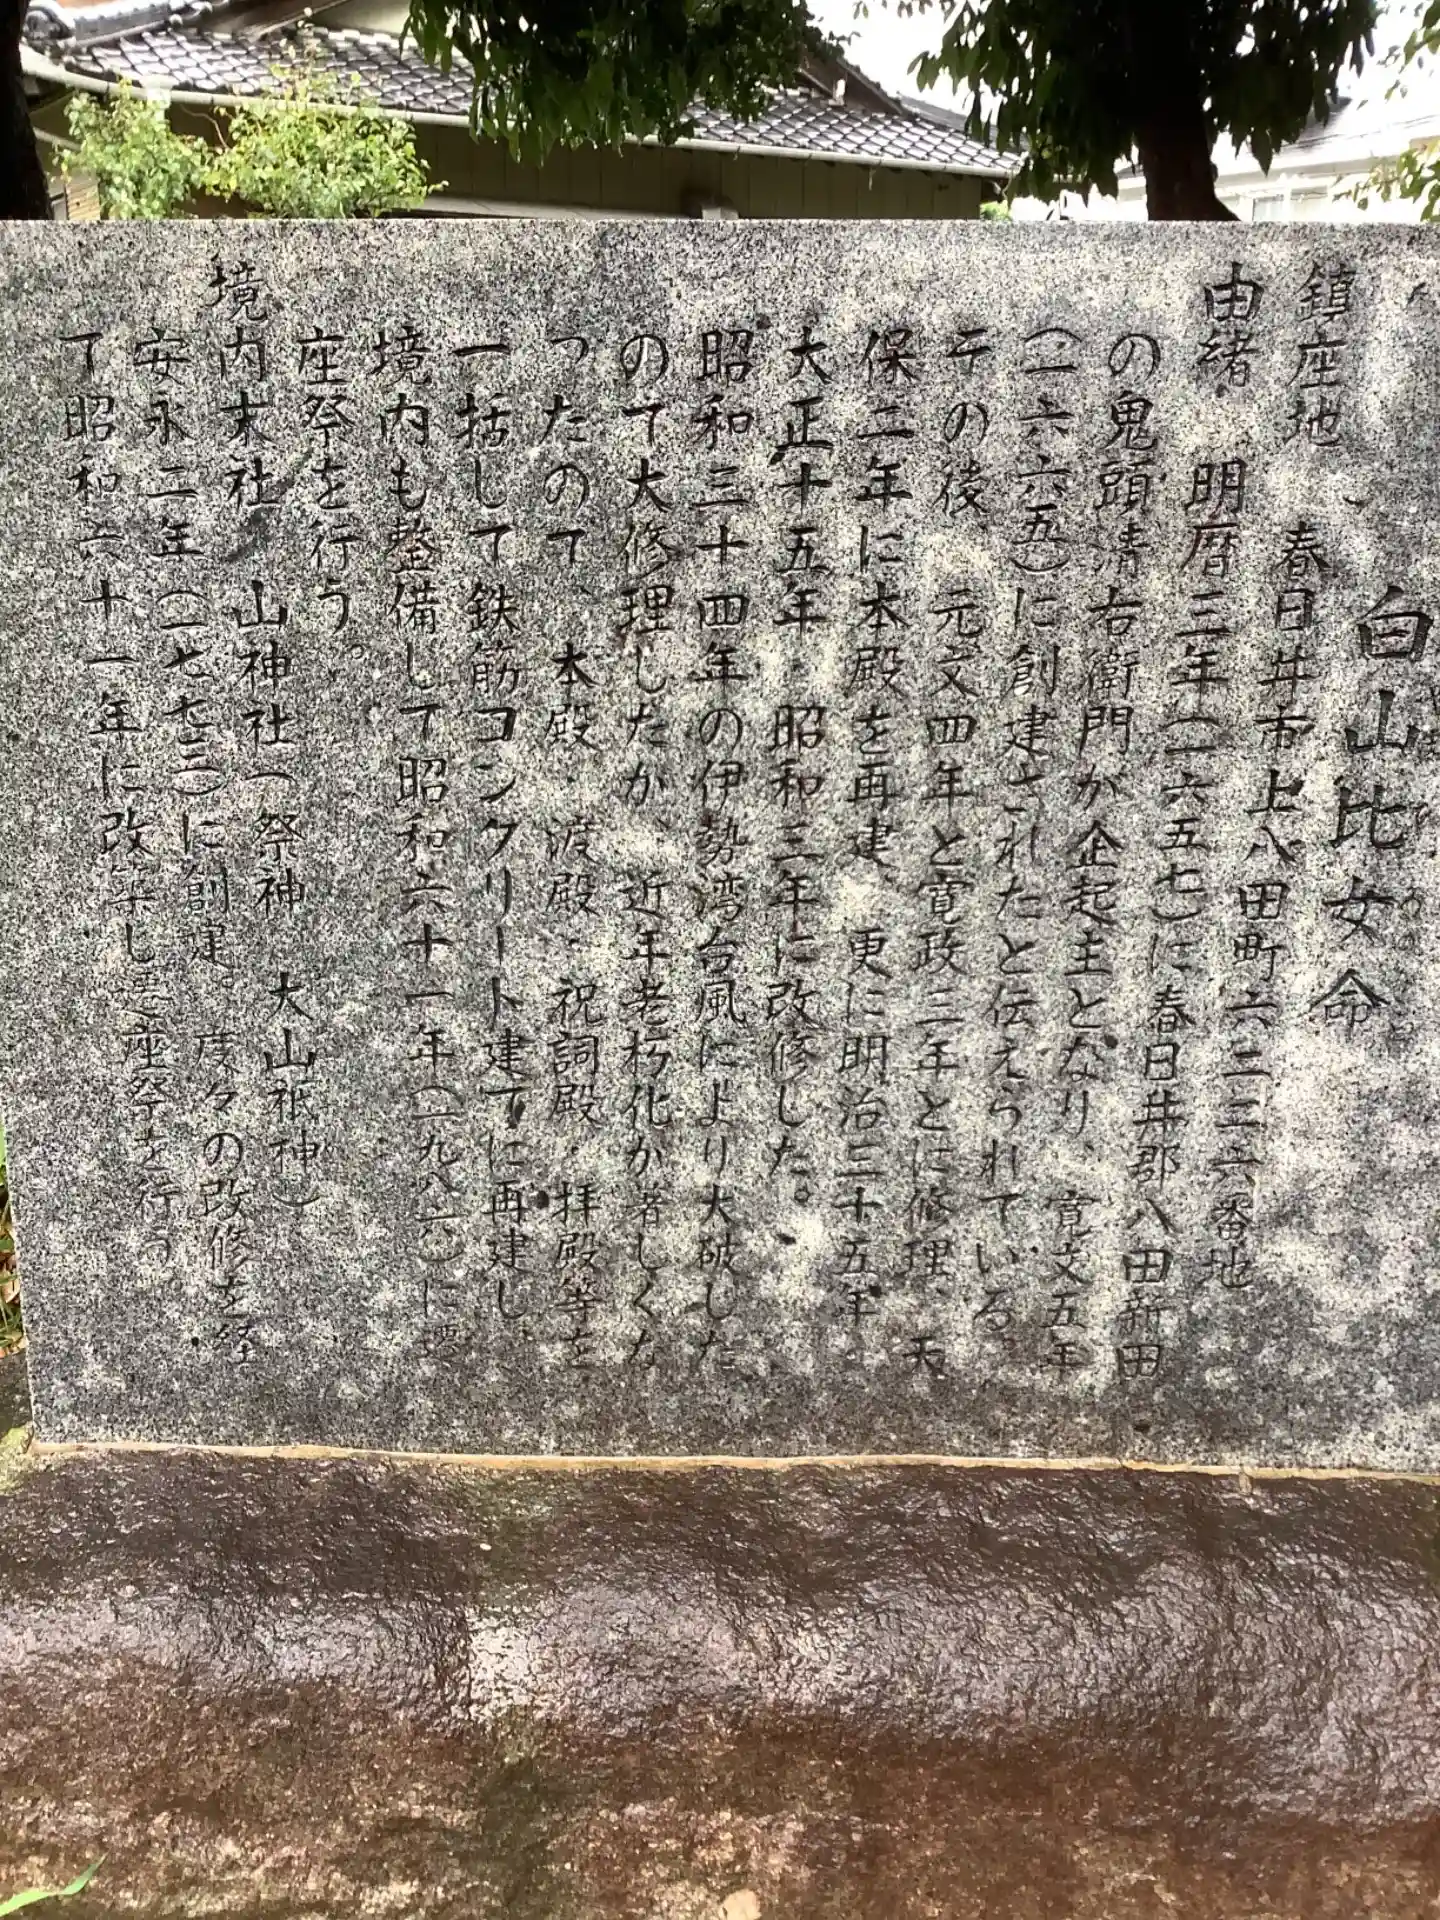 白山比女命
鎮座地　春日井市上八田町六二三六番地
由緒　明暦三年(一六五七)に春日井郡八田新田
の鬼頭清右衛門が企起主となり、寛文五年
(一六六五)に創建されたと伝えられている。
その後　元文四年と寛政三年とに修理、天
保二年に本殿を再建、更に明治三十五年・
大正十五年・昭和三年に改修した。
昭和三十四年の伊勢湾台風により大破した
ので大修理したが、近年老朽化が著しくな
ったので、本殿・渡殿・祝詞殿・拝殿等を
一括して鉄筋コンクリート建てに再建し、
境内も整備して昭和六十一年(一九八六)に遷
座祭を行う。
境内末社　山神社(祭神　大山祇神)
安永二年(一七七三)に創建。度々の改修を経
て昭和六十一年に改築し遷座祭を行う